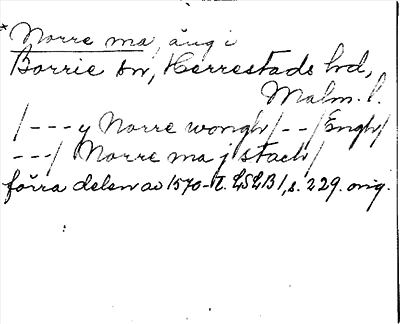 * Norre ma, äng i
Borrie sn, Herrestads hd,
Malm. l.
/--- y Norre wongh/--/Engh/
---/ Norre ma j stach/
förra delen av 1570-t. LSLB 1, s. 229. orig.